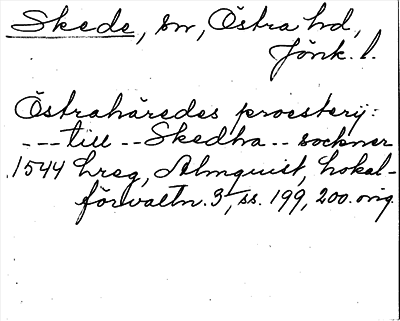 Skede, sn, Östra hd,
Jönk. l.
Östrahäredes proesterij:
--- till -- Skedha -- sockner
1544 hreg, Almquist, Lokal-
förvaltn. 3, ss. 199, 200. orig.